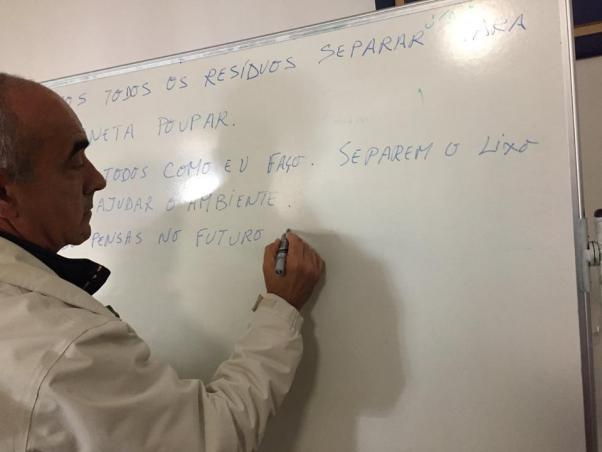 OS TODOS OS RESÍDUOS SEPARAR PARA
NETA POUPAR.
TODOS COMO EU FAÇO. SEPAREM O LIXO
AJUDAR O AMBIENTE.
PENSAS NO FUTURO